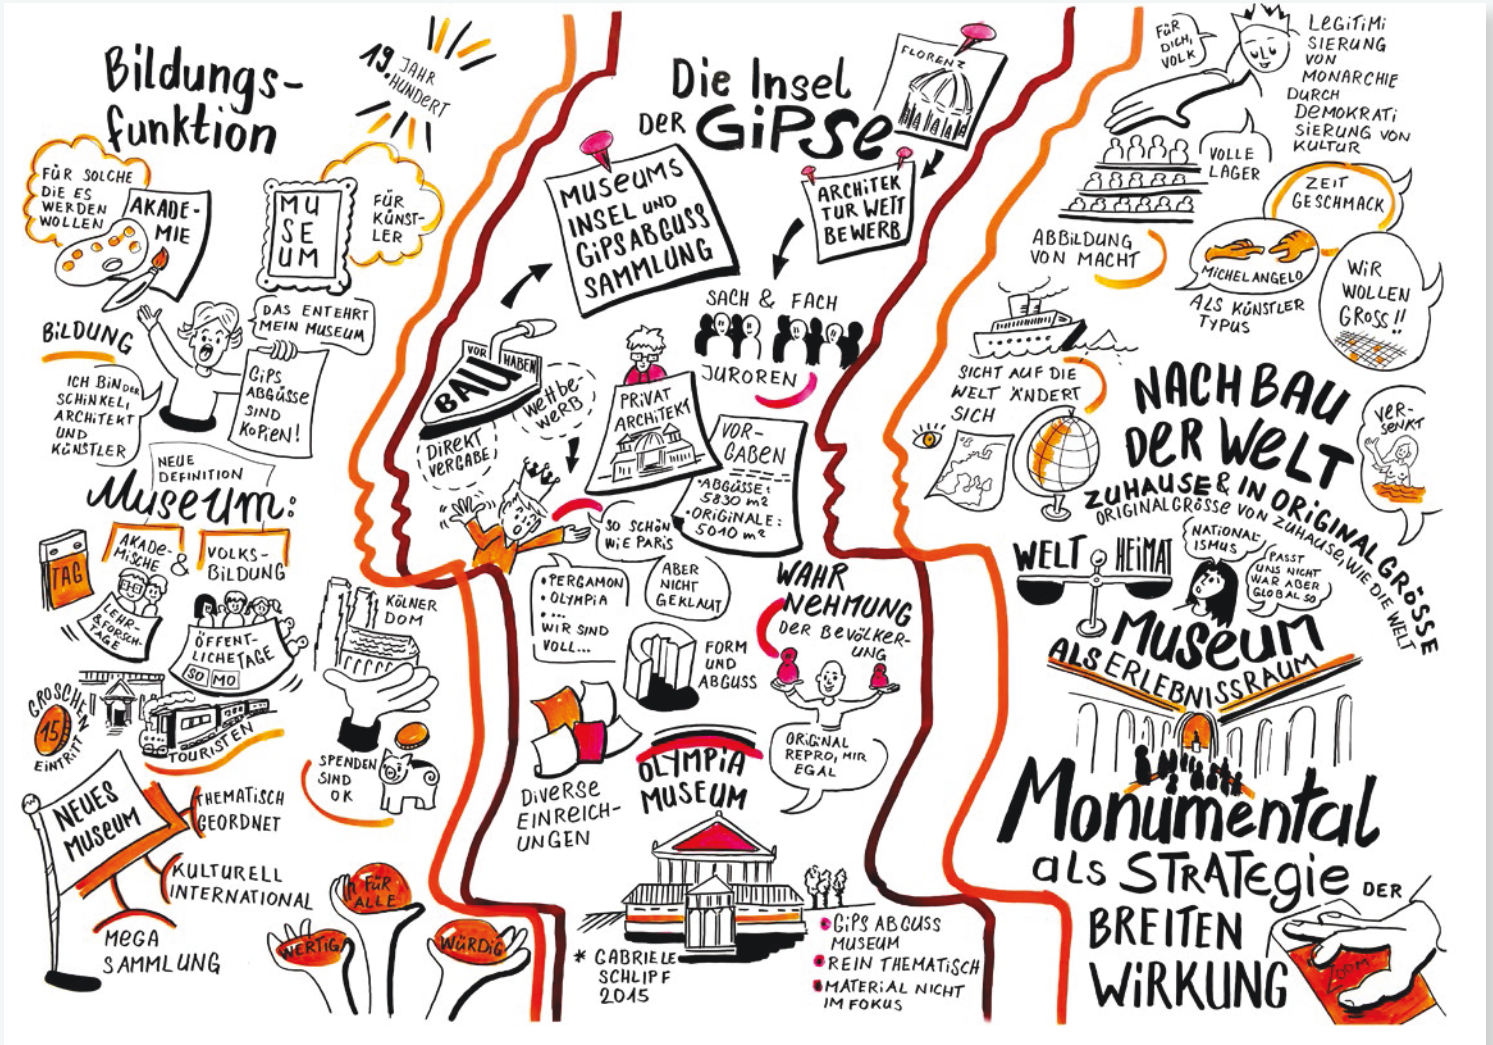 Bildungs-
funktion
19.
JAHR
HUNDERT
FÜR SOLCHE
DIE ES
WERDEN
WOLLEN
AKADE-
MIE
MU
SE
UM
FÜR
KÜNST-
LER
BILDUNG
DAS ENTEHRT
MEIN MUSEUM
ICH BIN DER
SCHINKEL,
ARCHITEKT
UND
KÜNSTLER
GIPS
ABGÜSSE
SIND
KOPIEN!
NEUE
DEFINITION
Museum:
TAG
AKADE-
MISCHE
&
VOLKS-
BILDUNG
LEHR-
& FORSCH-
TAGE
ÖFFENT-
LICHE TAGE
SO MO
KÖLNER
DOM
GROSCHEN
15
EINTRITT
TOURISTEN
SPENDEN
SIND
OK
NEUES
MUSEUM
THEMATISCH
GEORDNET
KULTURELL
INTERNATIONAL
MEGA
SAMMLUNG
WERTIG
FÜR
ALLE
WÜRDIG
Die Insel
DER GIPSE
FLORENZ
MUSEUMS
INSEL UND
GIPSABGUSS
SAMMLUNG
ARCHITEK
TUR WETT
BEWERB
SACH & FACH
JUROREN
BAU
VOR
HABEN
DIREKT
VERGABE
Wettbe-
werb
PRIVAT
ARCHITEKT
VOR-
GABEN
• ABGÜSSE:
5830 m²
• ORIGINALE:
5010 m²
SO SCHÖN
WIE PARIS
• PERGAMON
• OLYMPIA
• ...
WIR SIND
VOLL...
ABER
NICHT
GEKLAUT
FORM
UND
ABGUSS
WAHR
NEHMUNG
DER BEVÖLKER-
UNG
ORIGINAL
REPRO, MIR
EGAL
DIVERSE
EINREICH-
UNGEN
OLYMPIA
MUSEUM
* GABRIELE
SCHLIPF
2015
• GIPS ABGUSS
MUSEUM
• REIN THEMATISCH
• MATERIAL NICHT
IM FOKUS
FÜR
DICH,
VOLK
LEGITIMI
SIERUNG
VON
MONARCHIE
DURCH
DEMOKRATI
SIERUNG VON
KULTUR
VOLLE
LAGER
ABBILDUNG
VON MACHT
ZEIT
GESCHMACK
MICHELANGELO
ALS KÜNSTLER
TYPUS
WIR
WOLLEN
GROSS!!
SICHT AUF DIE
WELT ÄNDERT
SICH
NACHBAU
DER WELT
ZUHAUSE & IN ORIGINALGRÖSSE
ORIGINALGRÖSSE VON ZUHAUSE, WIE DIE WELT
VER-
SENKT
WELT
HEIMAT
NATIONAL-
ISMUS
PASST
UNS NICHT
WAR ABER
GLOBAL SO
MUSEUM
ALS ERLEBNISSRAUM
Monumental
als STRATEgie DER
BREITEN
WIRKUNG
ZOOM